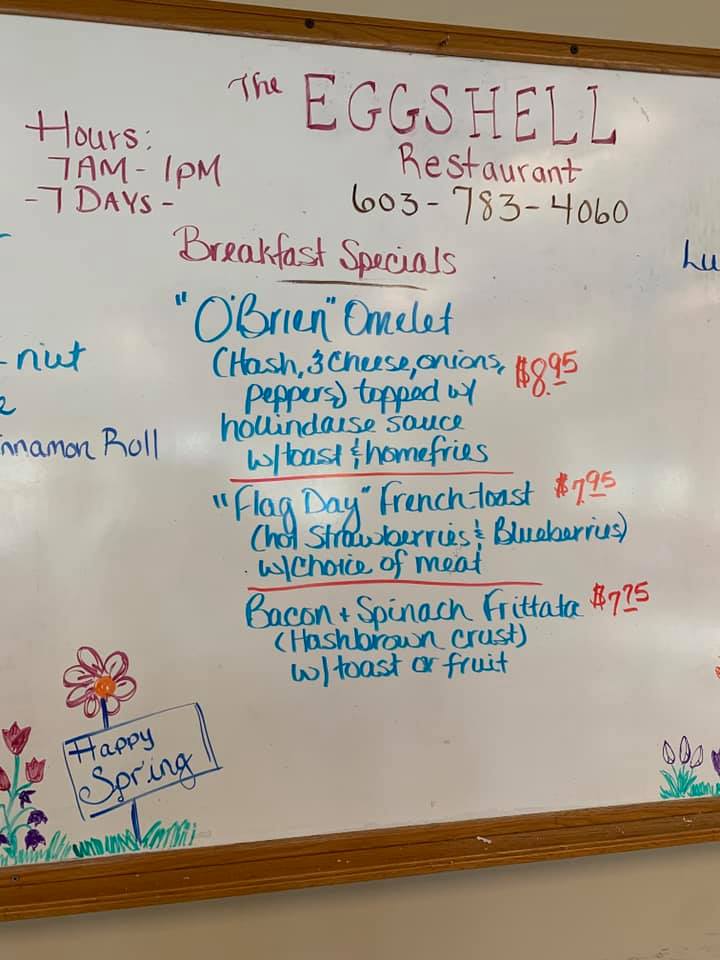 The EGGSHELL
Restaurant
603-783-4060
Hours:
7AM - 1PM
-7 DAYS-
Breakfast Specials
"O'Brien" Omelet
(Hash, 3 Cheese, onions, $8.95
peppers) topped w/
hollindaise sauce
w/toast & homefries
"Flag Day" French toast $7.95
(hot Strawberries & Blueberries)
w/Choice of meat
Bacon + Spinach Frittata $7.75
(Hashbrown crust)
w/toast or fruit
nut
nnamon Roll
Lu
Happy
Spring